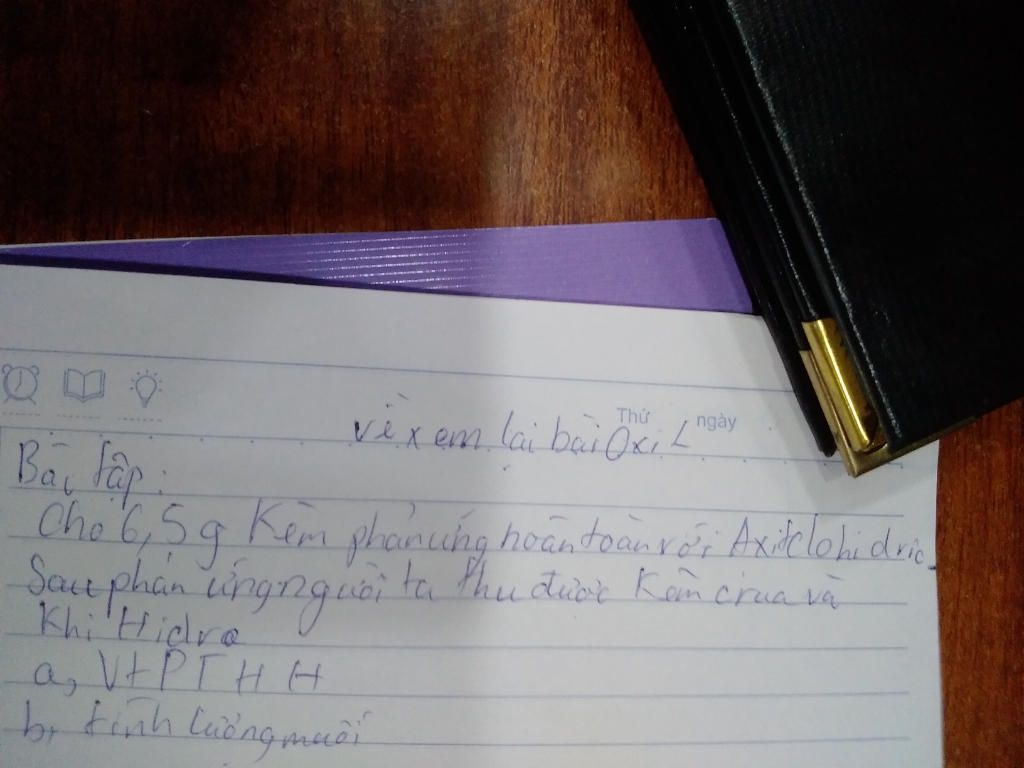 Thứ ngày
về xem lại bài Oxi
Bài tập:
Cho 6,5g Kẽm phản ứng hoàn toàn với Axitclohidric.
Sau phản ứng người ta thu được Kẽm crua và
Khi Hidro
a, VtPTHH
b, tính lượng muối